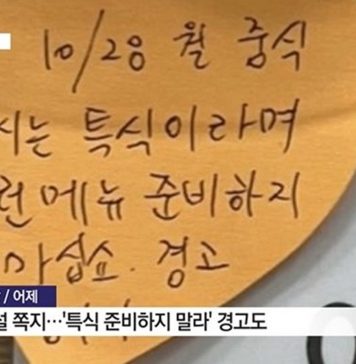 10/28 월 중식
시는 특식이라며
런 메뉴 준비하지
마십쇼. 경고
/ 어제
쪽지...'특식 준비하지 말라' 경고도